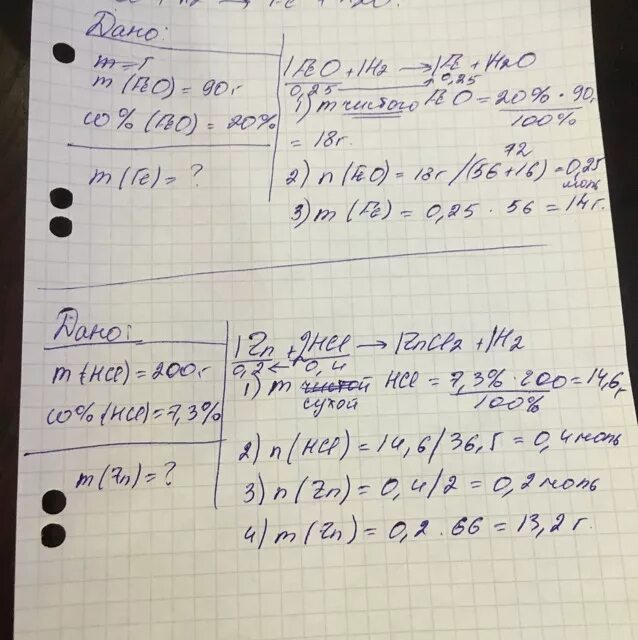 Дано:
m = г
m (FeO) = 90 г
ω% (FeO) = 20%
m (Fe) = ?
1FeO + 1H2 → 1Fe + H2O
0,25 0,25
1) m чистого FeO = 20% · 90 г
100%
= 18 г.
72
2) n (FeO) = 18 г / (56 + 16) = 0,25
моль
3) m (Fe) = 0,25 · 56 = 14 г.
Дано:
m (HCl) = 200 г
ω% (HCl) = 7,3%
m (Zn) = ?
1Zn + 2HCl → 1ZnCl2 + 1H2
0,2 ← 0,4
1) m чистой HCl = 7,3% · 200 = 14,6 г
сухой 100%
2) n (HCl) = 14,6 / 36,5 = 0,4 моль
3) n (Zn) = 0,4 / 2 = 0,2 моль
4) m (Zn) = 0,2 · 66 = 13,2 г.